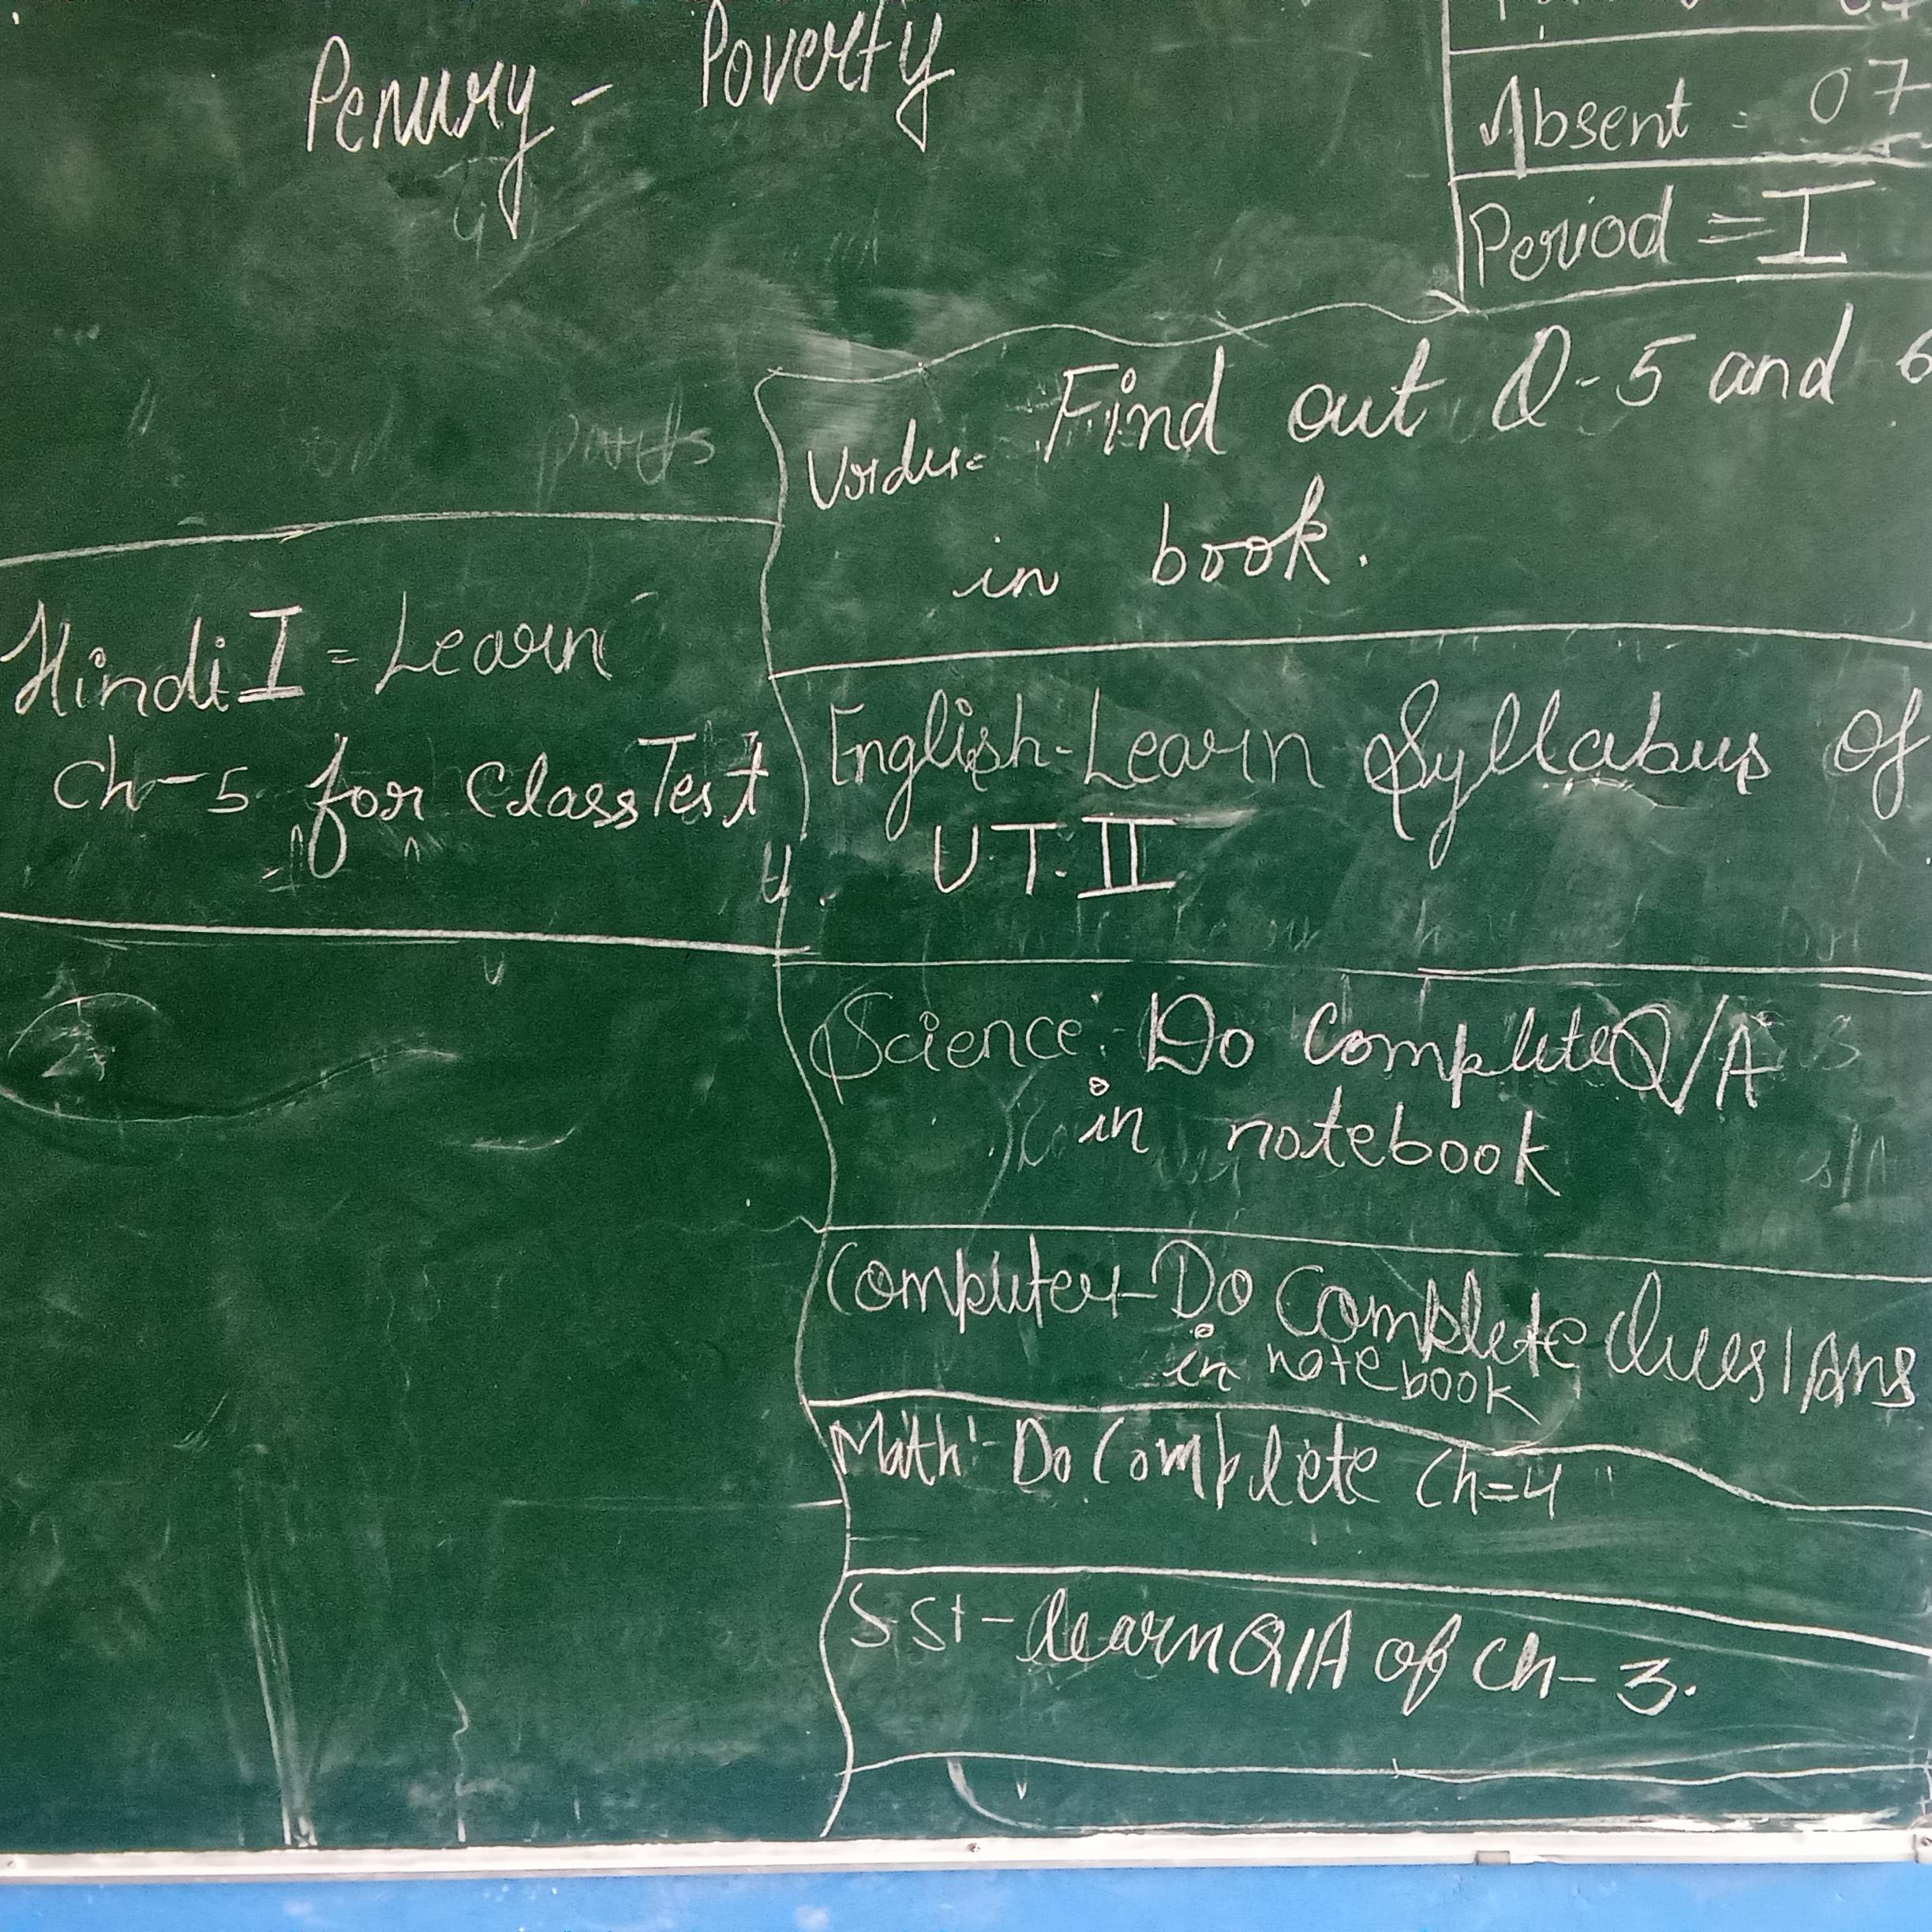 Penury - Poverty
Absent = 07
Period = I
Urdu = Find out Q-5 and 6
in book.
Hindi I = Learn
Ch-5 for Class Test
English - Learn Syllabus of
U.T. II
Science :- Do Complete Q/A
in notebook
Computer - Do Complete Ques/Ans
in notebook
Math :- Do Complete Ch=4
S.St - learn Q/A of Ch-3.